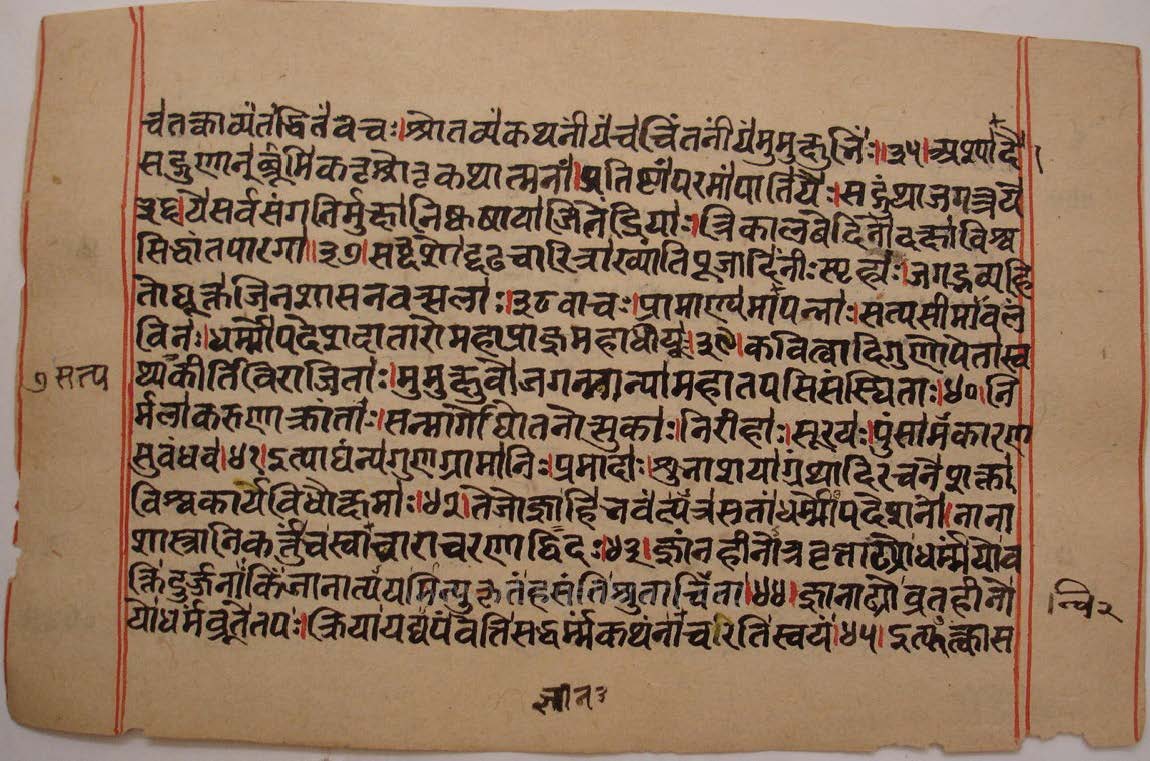 चेतत्काव्यं तद्धितं वचः।श्रोतव्यं कथनीयं च चिंतनीयं मुमुक्षुभिः॥३५।अथ शृणु दे
सद्गुणान् ब्रूमि कतृश्रोतृकथात्मनां।प्रतिष्टां परमां पाति यैः।सद्ग्रंथा जगत्त्रये
३६।ये सर्वसंगनिर्मुक्ता निष्कषाया जितेंद्रियाः।त्रिकालवेदिनो वक्ता विश्व
सिद्धांतपारगा॥३७।सद्दृशो दृढचारित्रा ख्यातिपूजादिनीःस्पृहाः।जगद्भव्यहि
तोद्युक्त जिनशासनवत्सलाः।३८ वाचः।प्रामाण्यमापन्नाः।सत्यसीमावलं
विनः।धर्म्मोपदेशदातारो महाप्राज्ञमहाधीयः।३९।कवित्वादिगुणोपेता स्व
७ सत्प
थ्यकीर्तिविराजिताः।मुमुक्षुवो जगन्मान्या महातपसि संस्थिताः।४०।नि
र्मलाकरुणाक्रांताः।सन्मार्गोद्योतनोत्सुकाः।निरीहाः।सूरयः।पुंसामकारण
सुवंधव।४१।इत्याद्यन्यगुणग्रामानिः।प्रमादाः।शुनाशया ग्रंथादिरचने शक्ता
विश्वकार्यविधौ क्षमाः।४२।तेज्ञोज्ञा हि नवंत्यत्र सतां धर्म्मोपदेशने।नाना
शास्त्रानि कर्तुं च स्वाचाराचरणाद्विदः।४३।ज्ञानहीनोत्र वृत्ताढ्यो धर्म्मं यो व
क्ति दुर्जना किं जानात्ययमित्युक्तं हसंति श्रुताचिंता।४४।ज्ञानाढ्यो व्रतहीनो
।न्वि २
यो धर्मं व्रूते तपः।क्रियां यद्ययं वति सद्धर्म्मं कथं नाचरति स्वयं।४५।इत्युक्त्वा स
ज्ञान ३